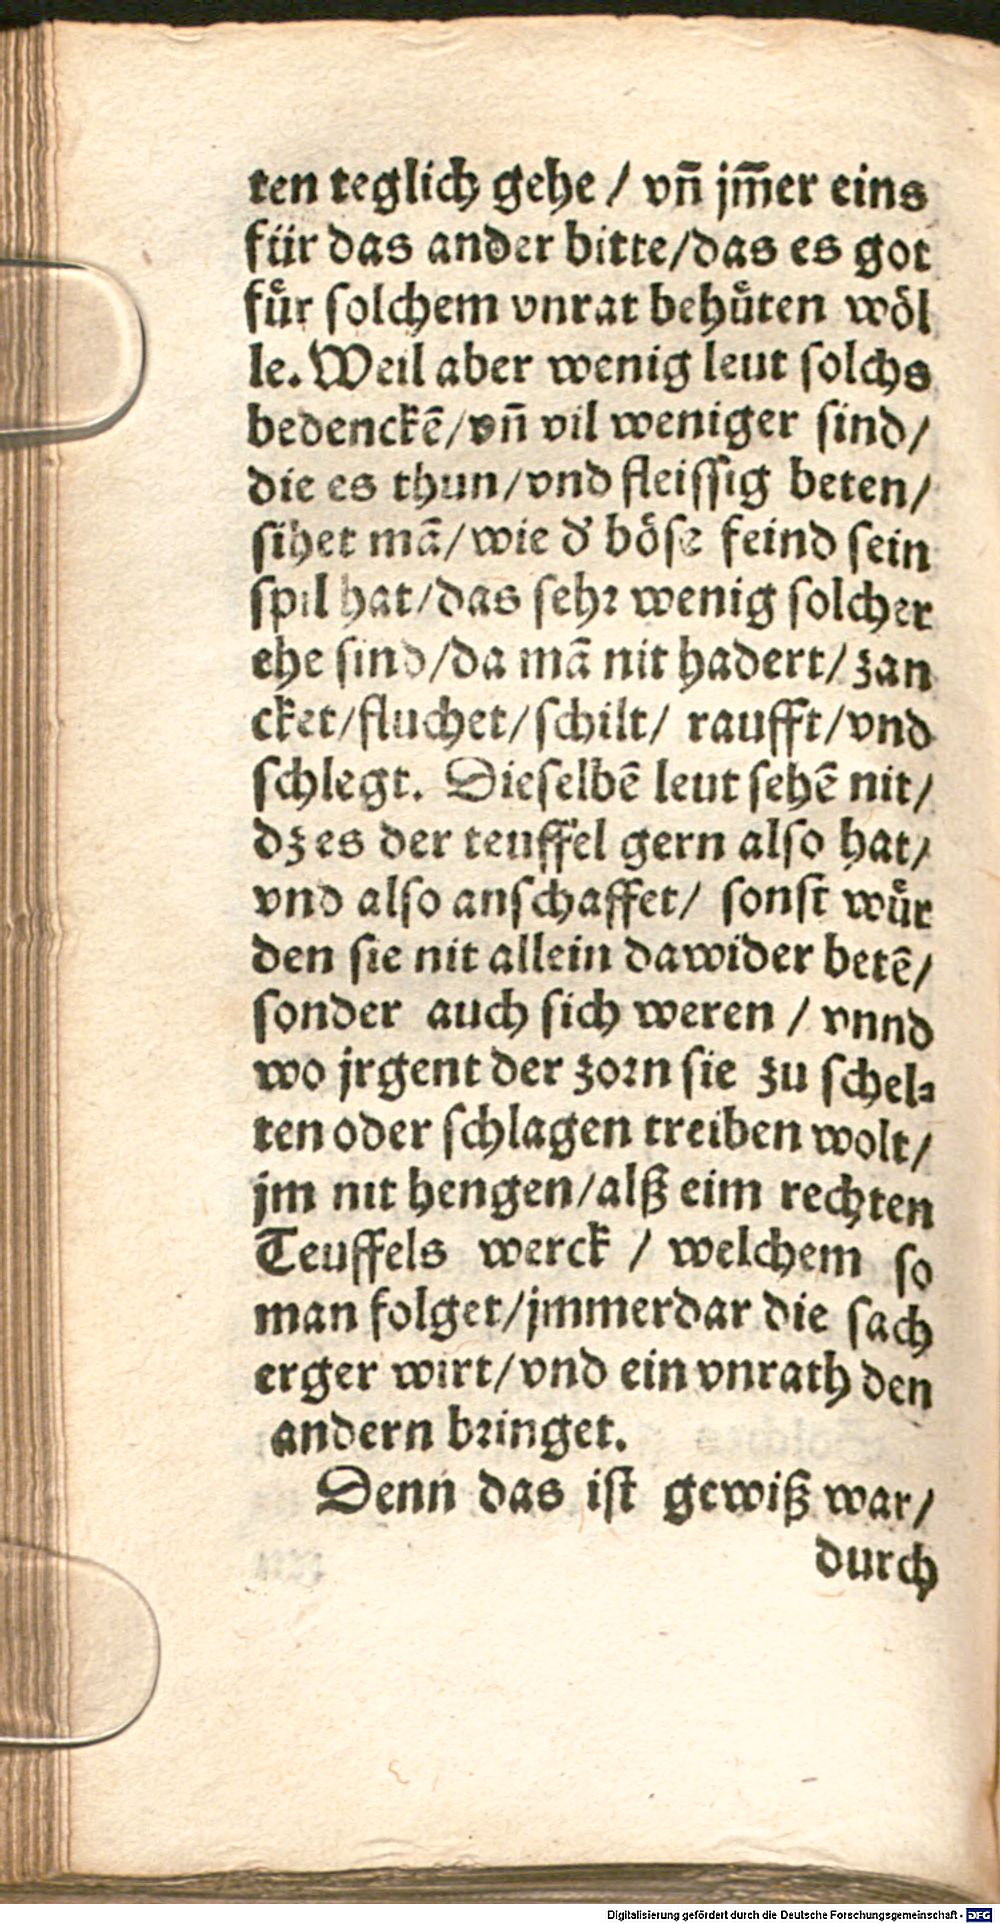 ten teglich gehe / vñ jm̃er eins
für das ander bitte/das es got
fuͤr ſolchem vnrat behuͤten woͤl
le. Weil aber wenig leut ſolchs
bedenckē/vñ vil weniger ſind/
die es thun/vnd fleiſſig beten/
ſihet mā/wie d' boͤſe feind ſein
ſpil hat/das ſehꝛ wenig ſolcher
ehe ſind/da mā nit hadert/zan
cket/fluchet/ſchilt/ raufft/vnd
ſchlegt. Dieſelbē leut ſehē nit/
dz es der teuffel gern alſo hat/
vnd alſo anſchaffet/ ſonſt wuͤr
den ſie nit allein dawider betē/
ſonder auch ſich weren / vnnd
wo jrgent der zoꝛn ſie zu ſchel⸗
ten oder ſchlagen treiben wolt/
jm nit hengen/alß eim rechten
Teuffels werck / welchem ſo
man folget/jmmerdar die ſach
erger wirt/vnd ein vnrath den
andern bꝛinget.
Denn das iſt gewiß war/
durch
Digitalisierung gefördert durch die Deutsche Forschungsgemeinschaft - DFG